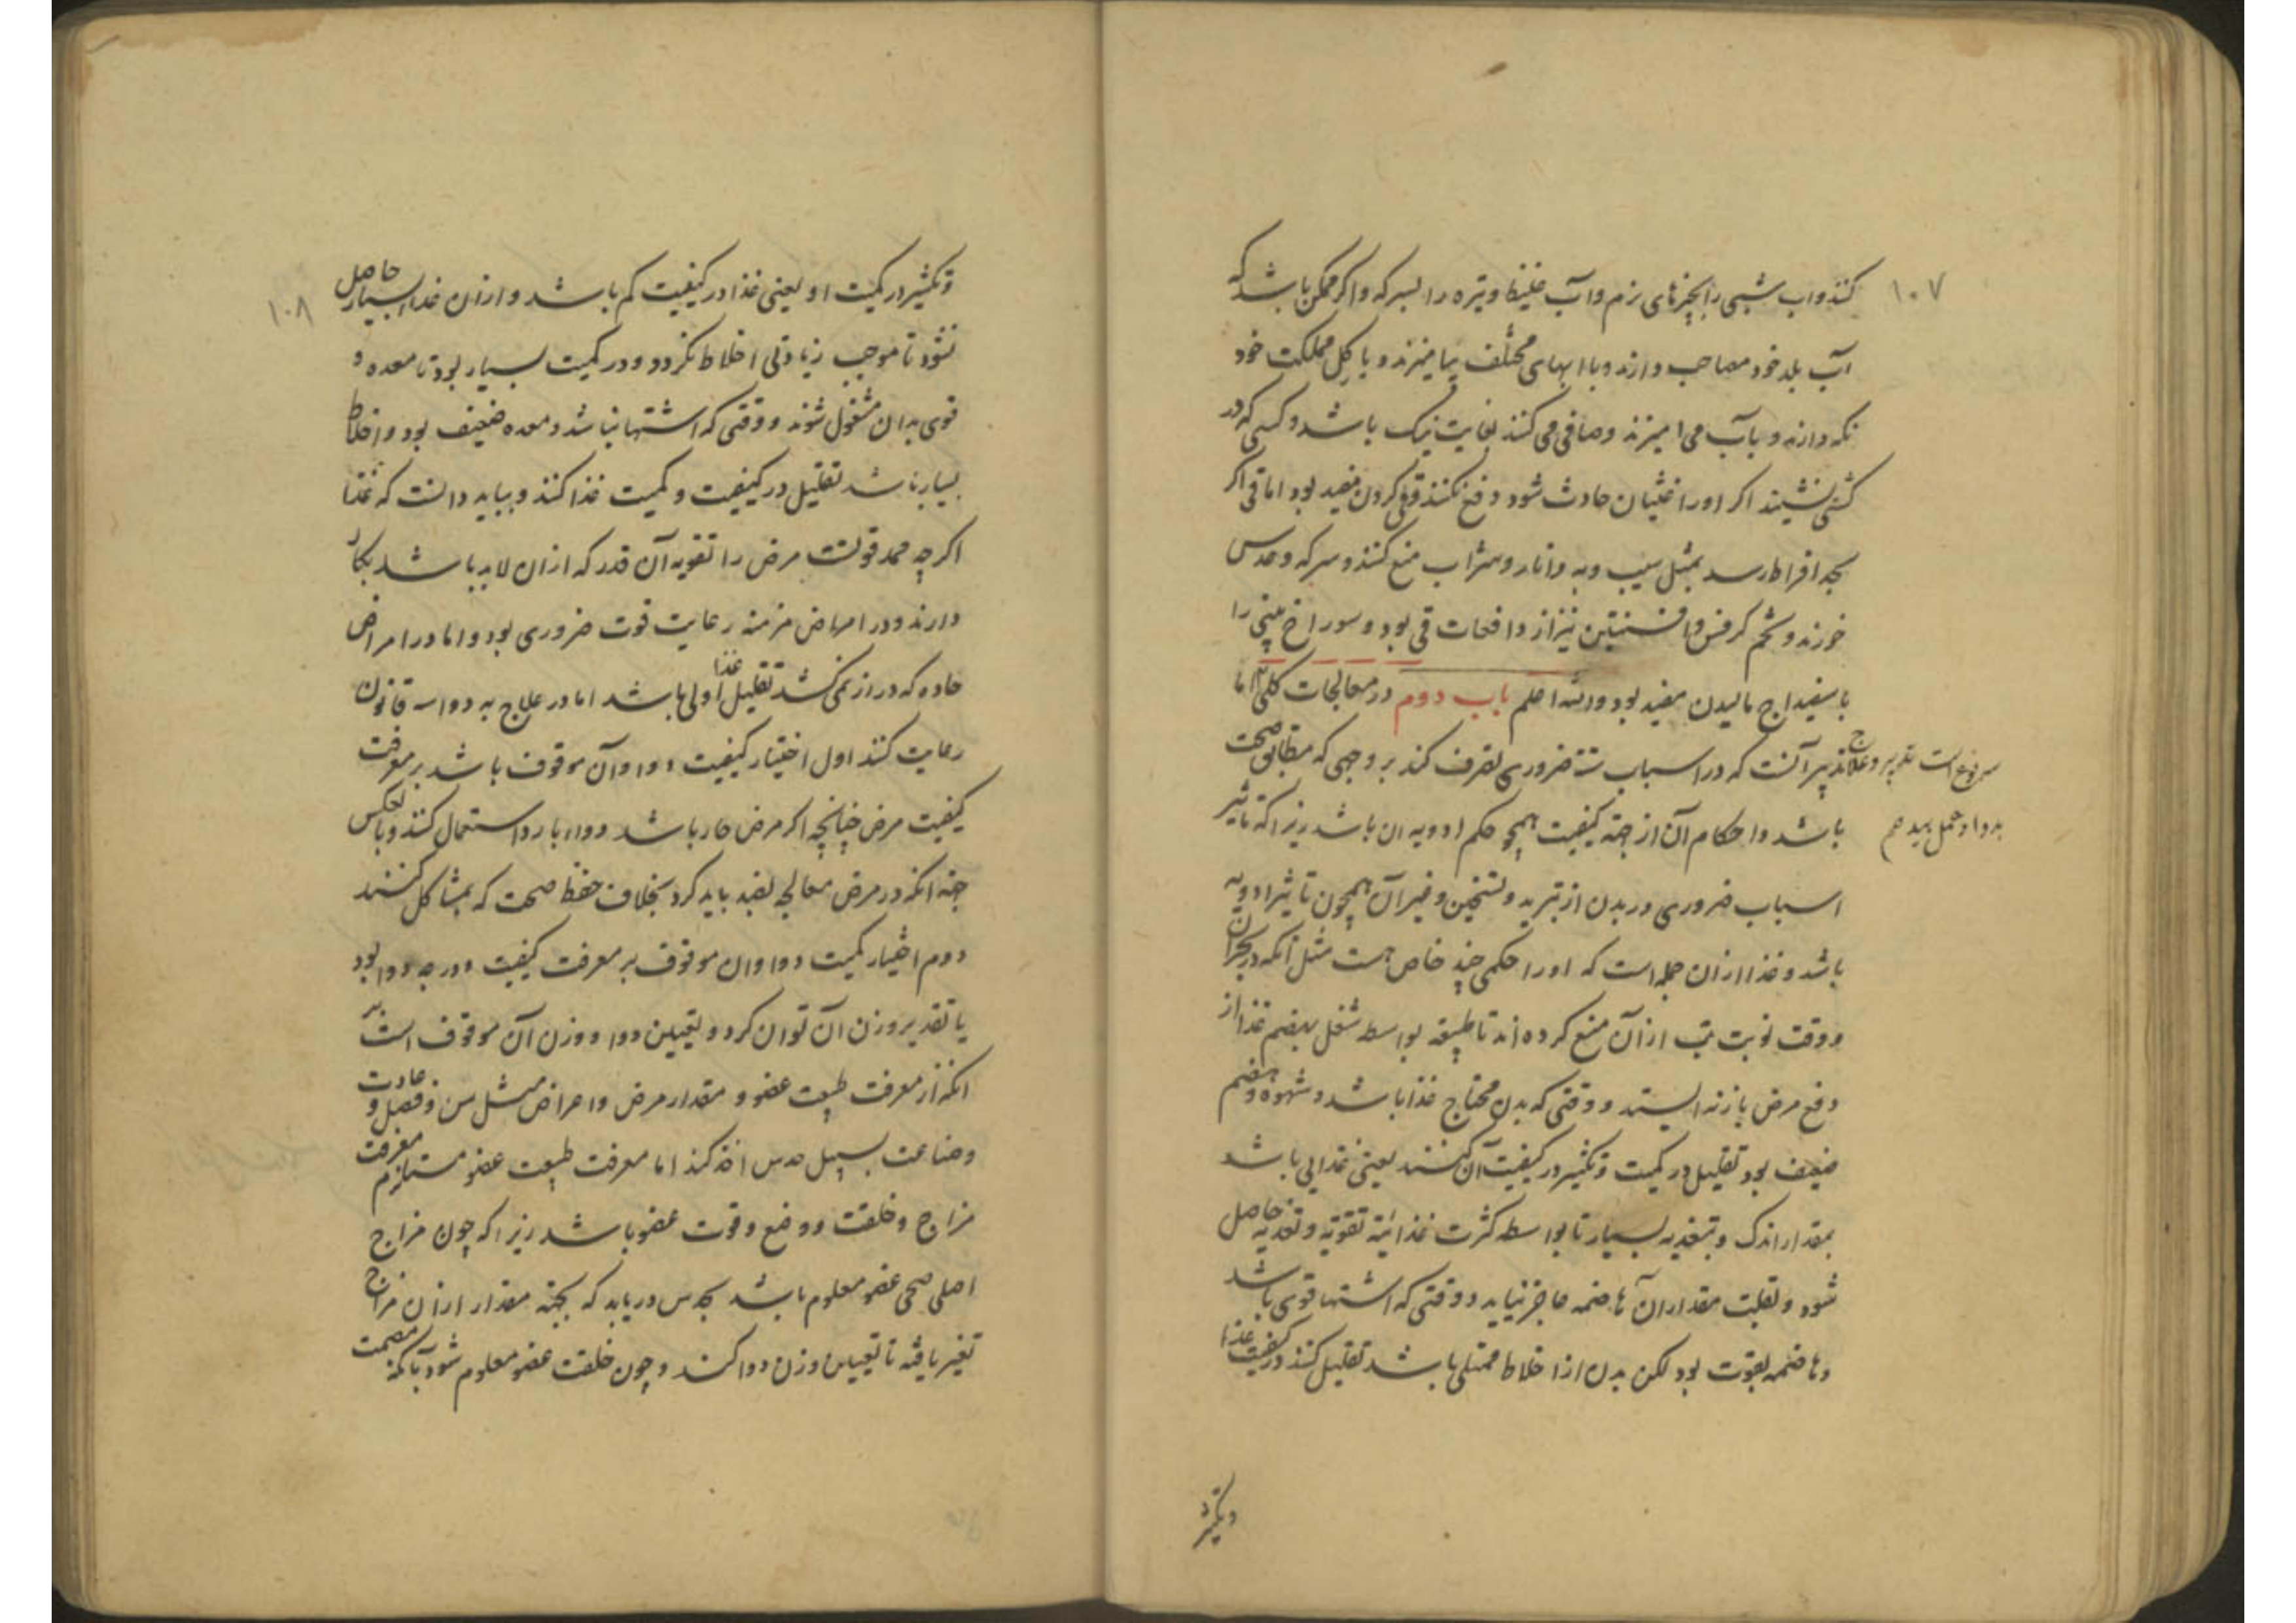 ۱۰۷
کنند و اب شبی را بچیزهای نرم و آب غلیظ و تیره را بسرکه و اگر ممکن باشد که
آب بلد خود مصاحب دارند و با ابهای مختلف بیامیزند و با کل مملکت خود
نکه دارند و بآب می امیزند و صافی می کنند بغایت نیک باشد و کسی که در
کشتی نشیند اکر او را غثیان حادث شود دفع نکنند قی کردن مفید بود اما قی اکر
بحد افراط رسد بمثل سیب و به و انار و شراب منع کنند و سرکه و عدس
خورند و تخم کرفس و افسنتین نیز از دافعات قی بود و سوراخ بینی را
با سفیداج مالیدن مفید بود والله اعلم باب دوم در معالجات کلی اما
تدبیر آنست که در اسباب ستة ضروری تصرف کند بر وجهی که مطابق صحت
باشد و احکام آن از جهة کیفیت همچو حکم ادویه ان باشد زیرا که تاثیر
اسباب ضروری در بدن از تبرید و تسخین و غیر آن همچون تاثیر ادویه
باشد و غذا ازان جمله است که او را حکمی چند خاص هست مثل آنکه در بحران
و وقت نوبت تب ازان منع کرده اند تا طبیعة بواسطه شغل بهضم غذا از
دفع مرض باز نه ایستد و وقتی که بدن محتاج غذا باشد و شهوة و هضم
ضعیف بود تقلیل در کمیت و تکثیر در کیفیت آن کنند یعنی غذایی باشد
بمقدار اندک و بتغذیه بسیار تا بواسطه کثرت غذائیة تقویة و تغذیه حاصل
شود و بقلت مقدار آن هاضمه عاجز نیاید و وقتی که اشتها قوی باشد
و هاضمه بقوت بود لکن بدن از اخلاط ممتلی باشد تقلیل کنند در کیفیت غذا
وتکثیر
علاج
بدوا و عمل بید هم
۱۰۸
و تکثیر در کمیت او یعنی غذا در کیفیت کم باشد و ازان غذا بسیار حاصل
نشود تا موجب زیادتی اخلاط نکردد و در کمیت بسیار بود تا معده و
قوی بدان مشغول شوند و وقتی که اشتها نباشد و معده ضعیف بود و اخلاط
بسیار باشد تقلیل در کیفیت و کمیت غذا کنند و بباید دانست که غذا
اکرچه ممد قوتست مرض را تقویه آن قدر که ازان لابد باشد بکار
دارند و در امراض مزمنه رعایت قوت ضروری بود و اما در امراض
حاده که دراز نمی کشد تقلیل غذا اولی باشد اما در علاج به دوا سه قانون
رعایت کنند اول اختیار کیفیت دوا و آن موقوف باشد بر معرفت
کیفیت مرض چنانچه اکر مرض حار باشد دواء بارد استعمال کنند و بالعکس
جهة انکه در مرض معالجه بضد باید کرد بخلاف حفظ صحت که بمشاکل کنند
دوم اختیار کمیت دوا و ان موقوف بر معرفت کیفیت و درجه دوا بود
یا تقدیر وزن آن توان کرد و تعیین دوا و وزن آن موقوف است بر
انکه از معرفت طبیعت عضو و مقدار مرض و اعراض مثل سن و فصل و عادت
و صناعت بسبیل حدس اخذ کند اما معرفت طبیعت عضو مستلزم معرفت
مزاج و خلقت و وضع و قوت عضو باشد زیرا که چون مزاج
اصلی صحی عضو معلوم باشد بحدس دریابد که بچه مقدار ازان مزاج
تغیر یافته تا تعیین وزن دوا کند و چون خلقت عضو معلوم شود بآنکه مصمت